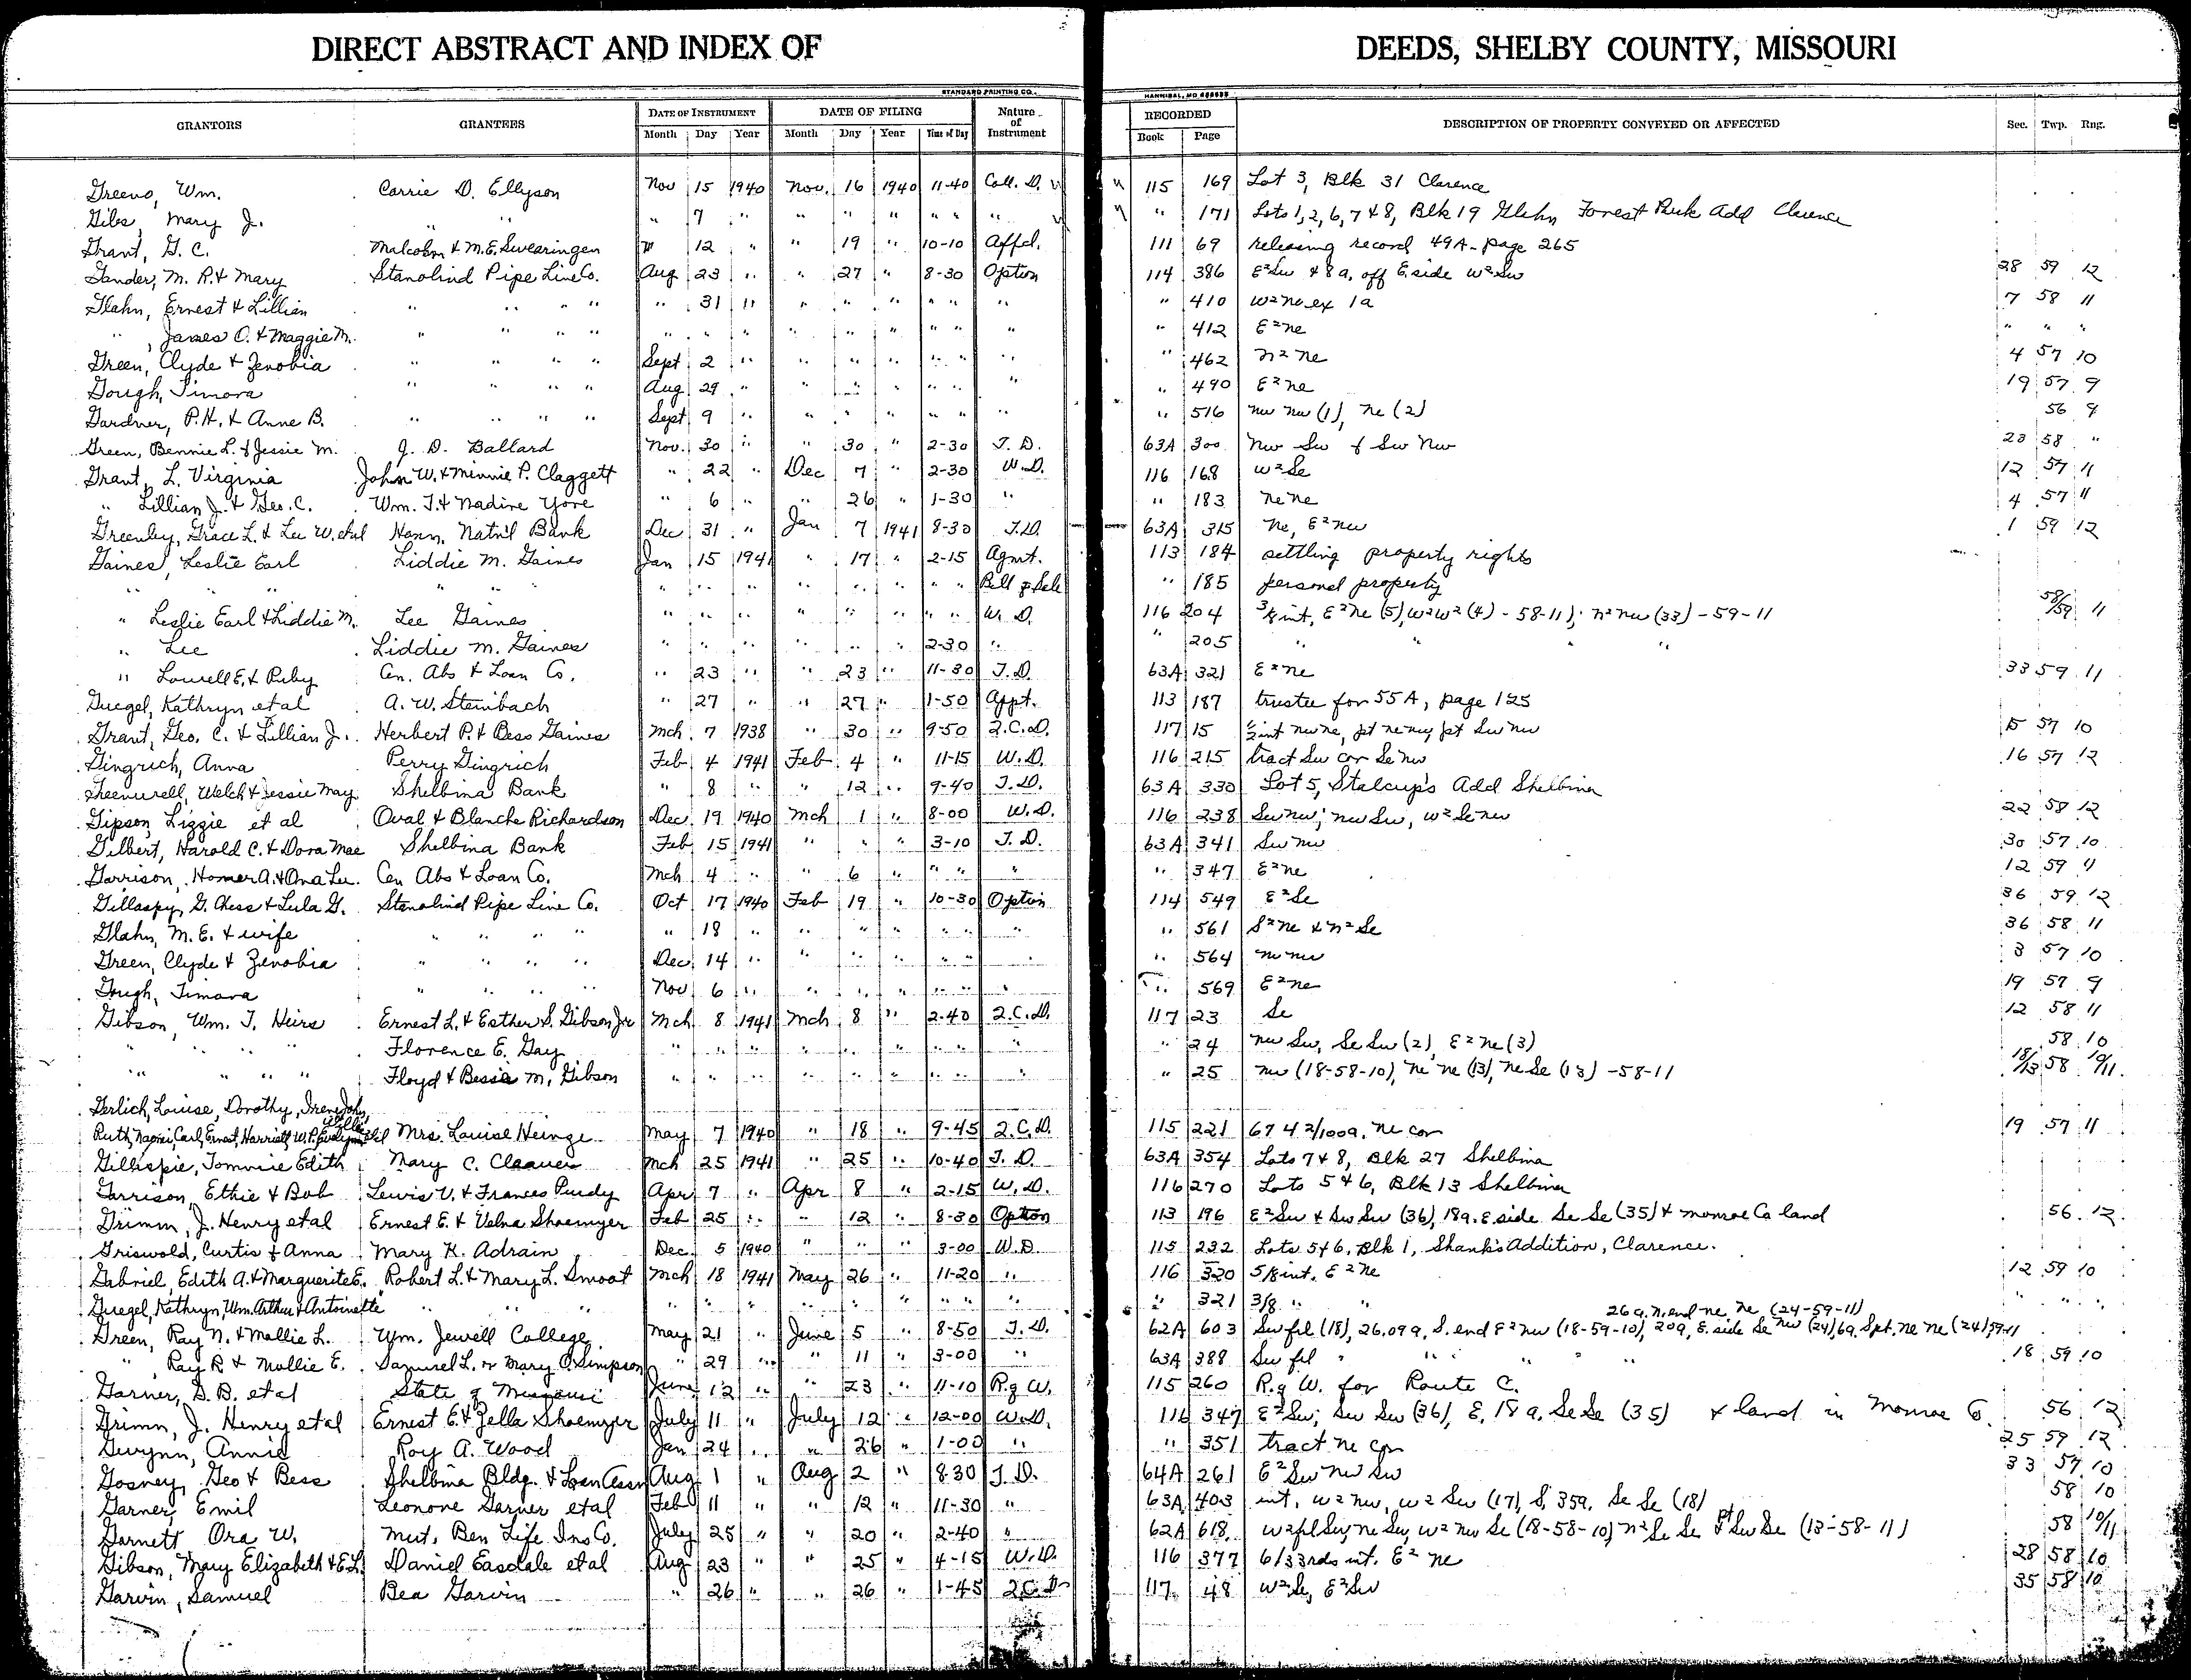 DIRECT ABSTRACT AND INDEX OF DEEDS, SHELBY COUNTY, MISSOURI
STANDARD PRINTING CO. HANNIBAL, MO
GRANTORS GRANTEES DATE OF INSTRUMENT DATE OF FILING Nature of Instrument RECORDED DESCRIPTION OF PROPERTY CONVEYED OR AFFECTED Sec. Twp. Rng.
Month Day Year Month Day Year Time of Day Book Page
Greeno, Wm. Carrie D. Ellyson Nov 15 1940 Nov. 16 1940 11-40 Coll. D. 115 169 Lot 3, Blk 31 Clarence
Gibs, Mary J. " " 7 " " " " " " " " 171 Lots 1, 2, 6, 7 & 8, Blk 19 Glahn Forrest Park Add Clarence
Grant, G. C. Malcolm & M.E. Swearingen " 12 " " 19 " 10-10 Affd. 111 69 releasing record 49A - page 265
Gander, M. R. & Mary Stanolind Pipe Line Co. Aug 23 " " 27 " 8-30 Option 114 386 E²Sw & 8a. off E. side W²Sw 28 59 12
Glahn, Ernest & Lillian " " " " " 31 " " " " " " " " 410 W²Ne ex 1a 7 58 11
" , James O. & Maggie M. " " " " " " " " " " " " " " 412 E²Ne " " "
Green, Clyde & Zenobia " " " " Sept 2 " " " " " " " " 462 N²Ne 4 57 10
Gough, Timora " " " " Aug 29 " " " " " " " " 490 E²Ne 19 57 9
Gardner, P.H. & Anne B. " " " " Sept 9 " " " " " " " " 516 Nw Nw (1), Ne (2) 56 9
Green, Bennie L. & Jessie M. J. D. Ballard Nov. 30 " " 30 " 2-30 T. D. 63A 300 Nw Sw & Sw Nw 23 58 "
Grant, L. Virginia John W. & Minnie P. Claggett " 22 " Dec 7 " 2-30 W.D. 116 168 W²Se 12 57 11
" Lillian J. & Geo. C. Wm. T. & Nadine Yore " 6 " " 26 " 1-30 " " 183 Ne Ne 4 57 11
Greenley, Grace L. & Lee W. etal Hann. Nat'l Bank Dec 31 " Jan 7 1941 8-30 T.D. 63A 315 Ne, E²Nw 1 59 12
Gaines, Leslie Earl Liddie M. Gaines Jan 15 1941 " 17 " 2-15 Agmt. 113 184 settling property rights
" " " " " " " " " " " " " " Bill of Sale " 185 personal property
" Leslie Earl & Liddie M. Lee Gaines " " " " " " " " W. D. 116 204 3/8 int. E²Ne (5), W²W² (4) - 58-11); N²Nw (33) - 59-11 58/59 11
" Lee Liddie M. Gaines " " " " " " 2-30 " " 205 " " "
" Lowell E. & Ruby Cen. Abs & Loan Co. " 23 " " 23 " 11-30 T. D. 63A 321 E²Ne 33 59 11
Guegel, Kathryn et al A. W. Steinbach " 27 " " 27 " 1-50 Appt. 113 187 trustee for 55A, page 125
Grant, Geo. C. & Lillian J. Herbert P. & Bess Gaines Mch. 7 1938 " 30 " 9-50 Q.C.D. 117 15 ½ int Nw Ne, pt Ne Nw, pt Sw Nw 15 57 10
Gingrich, Anna Perry Gingrich Feb 4 1941 Feb 4 " 11-15 W. D. 116 215 tract Sw cor Se Nw 16 57 12
Greenwell, Welch & Jessie May Shelbina Bank " 8 " " 12 " 9-40 T. D. 63A 330 Lot 5, Stalcup's Add Shelbina
Gipson, Lizzie et al Oval & Blanche Richardson Dec 19 1940 Mch 1 " 8-00 W. D. 116 238 Sw Nw; Nw Sw, W² Se Nw 22 58 12
Gilbert, Harold C. & Dora Mae Shelbina Bank Feb 15 1941 " " " 3-10 T. D. 63A 341 Sw Nw 30 57 10
Garrison, Homer A. & Ona Lee. Cen Abs & Loan Co. Mch 4 " " 6 " " " " " 347 E²Ne 12 59 9
Gillaspy, G. Chess & Lula G. Stanolind Pipe Line Co. Oct 17 1940 Feb 19 " 10-30 Option 114 549 E²Se 36 59 12
Glahn, M. E. & wife " " " " " 18 " " " " " " " " 561 S²Ne & N²Se 36 58 11
Green, Clyde & Zenobia " " " " Dec 14 " " " " " " " " 564 Nw Nw 3 57 10
Gough, Timora " " " " Nov 6 " " " " " " " " 569 E²Ne 19 57 9
Gibson, Wm. T. Heirs Ernest L. & Esther S. Gibson Jr Mch 8 1941 Mch 8 " 2-40 Q.C.D. 117 23 Se 12 58 11
" " " " Florence E. Gay " " " " " " " " " " 24 Nw Sw, Se Sw (2), E² Ne (3) 58 10
" " " " Floyd & Bessie M. Gibson " " " " " " " " " " 25 Nw (18-58-10), Ne Ne (13), Ne Se (13) -58-11 18/13 58 10/11
Gerlich, Louise, Dorothy, Irene, John, Willie
Ruth, Naomi, Carl, Ernest, Harriett, W. P. Evelyn Mrs. Louise Heinze May 7 1940 " 18 " 9-45 Q.C.D. 115 221 67 42/100a. Ne cor 19 57 11
Gillispie, Tommie Edith Mary C. Cleaver Mch 25 1941 " 25 " 10-40 T. D. 63A 354 Lots 7 & 8, Blk 27 Shelbina
Garrison, Ethie & Bob Lewis V. & Frances Purdy Apr 7 " Apr 8 " 2-15 W. D. 116 270 Lots 5 & 6, Blk 13 Shelbina
Grimm, J. Henry et al Ernest E. & Velna Shoemyer Feb 25 " " 12 " 8-30 Option 113 196 E²Sw & Sw Sw (36), 18a. E side Se Se (35) & Monroe Co land 56 12
Griswold, Curtis & Anna Mary K. Adrain Dec. 5 1940 " " " 3-00 W.D. 115 232 Lots 5 & 6, Blk 1, Shank's Addition, Clarence.
Gabriel, Edith A. & Marguerite E. Robert L. & Mary L. Smoot Mch 18 1941 May 26 " 11-20 " 116 320 5/8 int. E²Ne 12 59 10
Guegel, Kathryn, Wm. Arthur & Antoinette " " " " " " " " " " " " " 321 3/8 " " " " "
26 a. N. end Ne Ne (24-59-11)
Green, Ray N. & Mollie L. Wm. Jewell College May 21 " June 5 " 8-50 T. D. 62A 603 Sw frl (18), 26.09a, S. end E² Nw (18-59-10), 20a, E. side Se Nw (24), 6a. Spt. Ne Ne (24) 59-11
" Ray R & Mollie E. Samuel L. or Mary O. Simpson " 29 " " 11 " 3-00 " 63A 388 Sw frl " " " " " 18 59 10
Garner, D. B. et al State of Missouri June 12 " " 23 " 11-10 R. of W. 115 260 R. of W. for Route C.
Grimm, J. Henry et al Ernest E. & Zella Shoemyer July 11 " July 12 " 12-00 W.D. 116 347 E²Sw; Sw Sw (36), E. 18 a. Se Se (35) & land in Monroe Co. 56 12
Gwynn, Annie Roy A. Wood Jan 24 " " 26 " 1-00 " " 351 tract Ne cor 25 59 12
Gosney, Geo & Bess Shelbina Bldg. & Loan Assn Aug 1 " Aug 2 " 8-30 T. D. 64A 261 E² Sw Nw Sw 33 57 10
Garner, Emil Leonore Garner et al Feb 11 " " 12 " 11-30 " 63A 403 int. W² Nw, W² Sw (17), S. 35a. Se Se (18) 58 10
Garnett Ora W. Mut. Ben Life Ins Co. July 25 " " 20 " 2-40 " 62A 618 W² frl Sw, Ne Sw, W² Nw Se (18-58-10) N² Se Se & pt Sw Se (13-58-11) 58 10/11
Gibson, Mary Elizabeth & E.L. Daniel Easdale et al Aug 23 " " 25 " 4-15 W.D. 116 377 6/33rds int. E² Ne 28 58 10
Garvin, Samuel Bea Garvin " 26 " " 26 " 1-45 Q.C.D. 117 48 W²Se, E²Sw 35 58 10